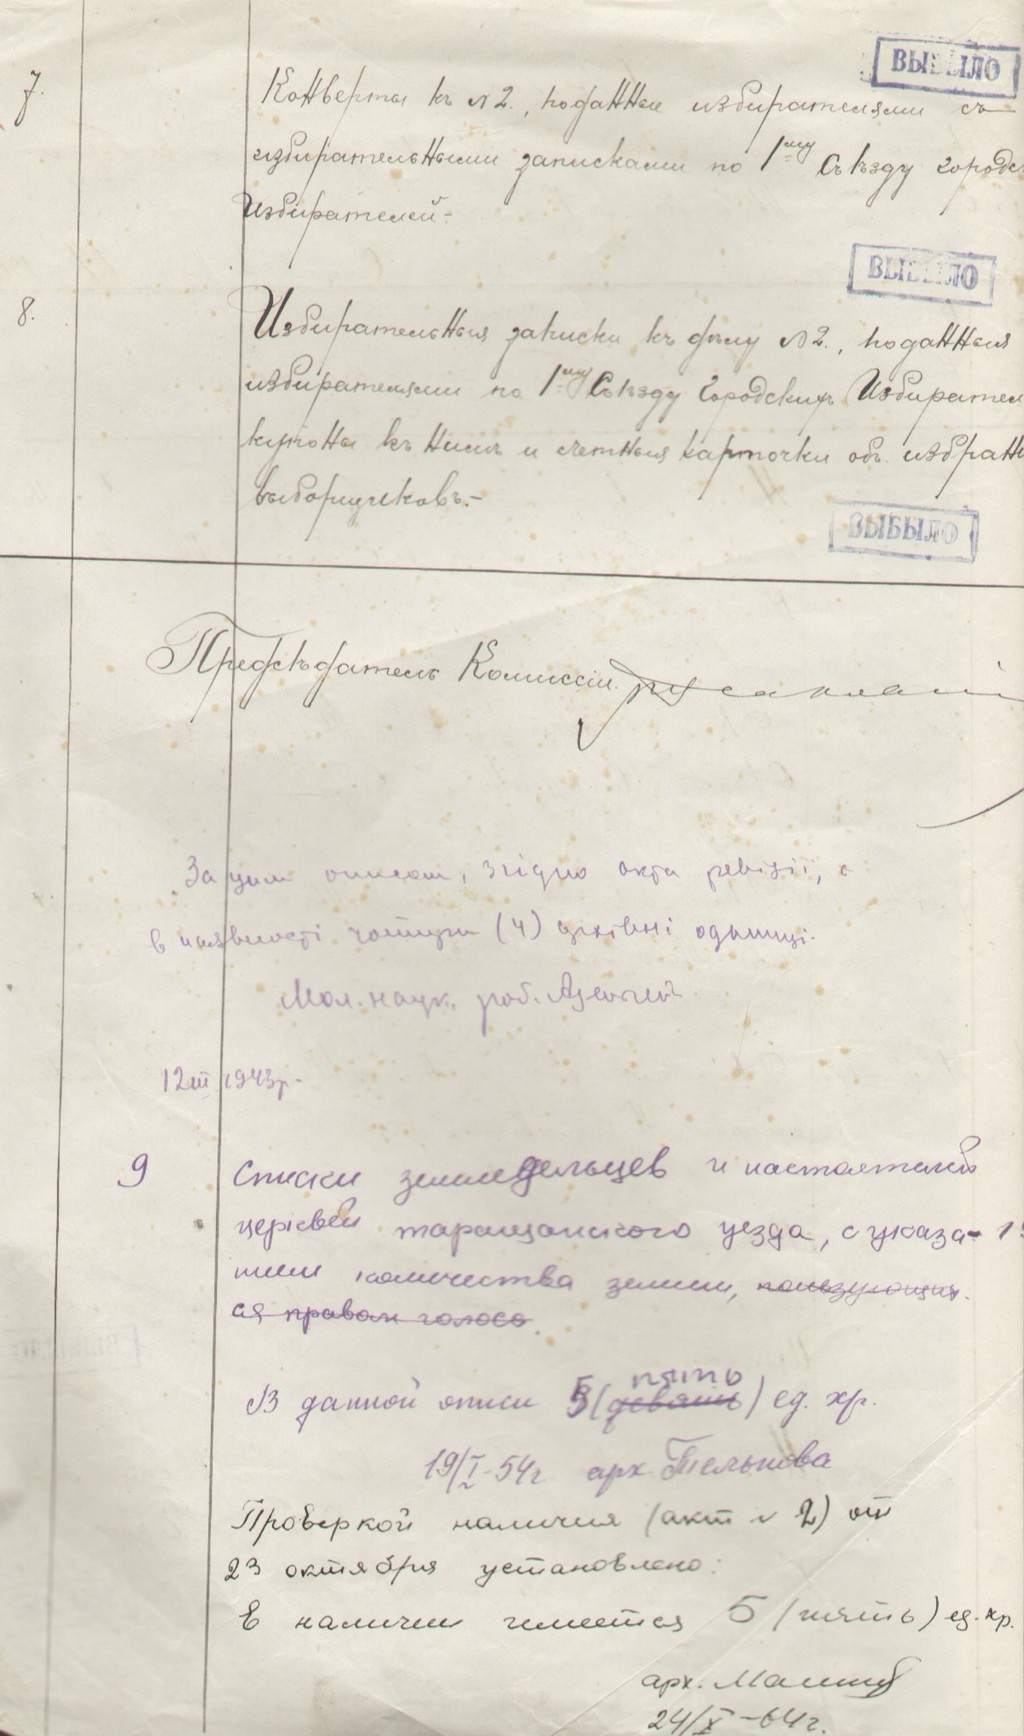 ВЫБЫЛО
7. Конверты къ №2., поданные избирателями съ
избирательными записками по 1му Съѣзду городс
Избирателей.-
ВЫБЫЛО
8. Избирательныя записки къ дѣлу №2., поданныя
избирателями по 1му Съѣзду Городскихъ Избирател
купоны къ нимъ и счетныя карточки объ избран
выборщиковъ.-
ВЫБЫЛО
Предсѣдатель Комиссіи
За цим описом, згідно акта ревізії, є
в наявності чотири (4) архівні одиниці.
Мол. наук. роб.
12 III 1943р.
9 Списки земледельцев и настоятелей
церквей таращанского уезда, с указа- 19
нием количества земли, пользующих
ся правом голоса.
В данной описи 5 (девять) пять ед. хр.
19/I-54г арх Телькова
Проверкой наличия (акт № 2) от
23 октября установлено:
В наличии имеется 5 (пять) ед. хр.
арх.
24/X-64г.